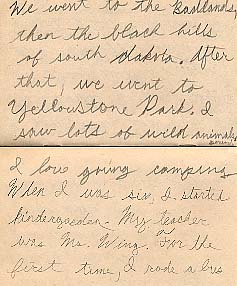 We went to the Badlands,
then the black hills
of south dakota. After
that, we went to
Yellowstone Park. I
saw lots of wild animals
I love going camping
When I was six, I started
kindergarden. My teacher
was Ms. Wing. For the
first time, I rode a bus